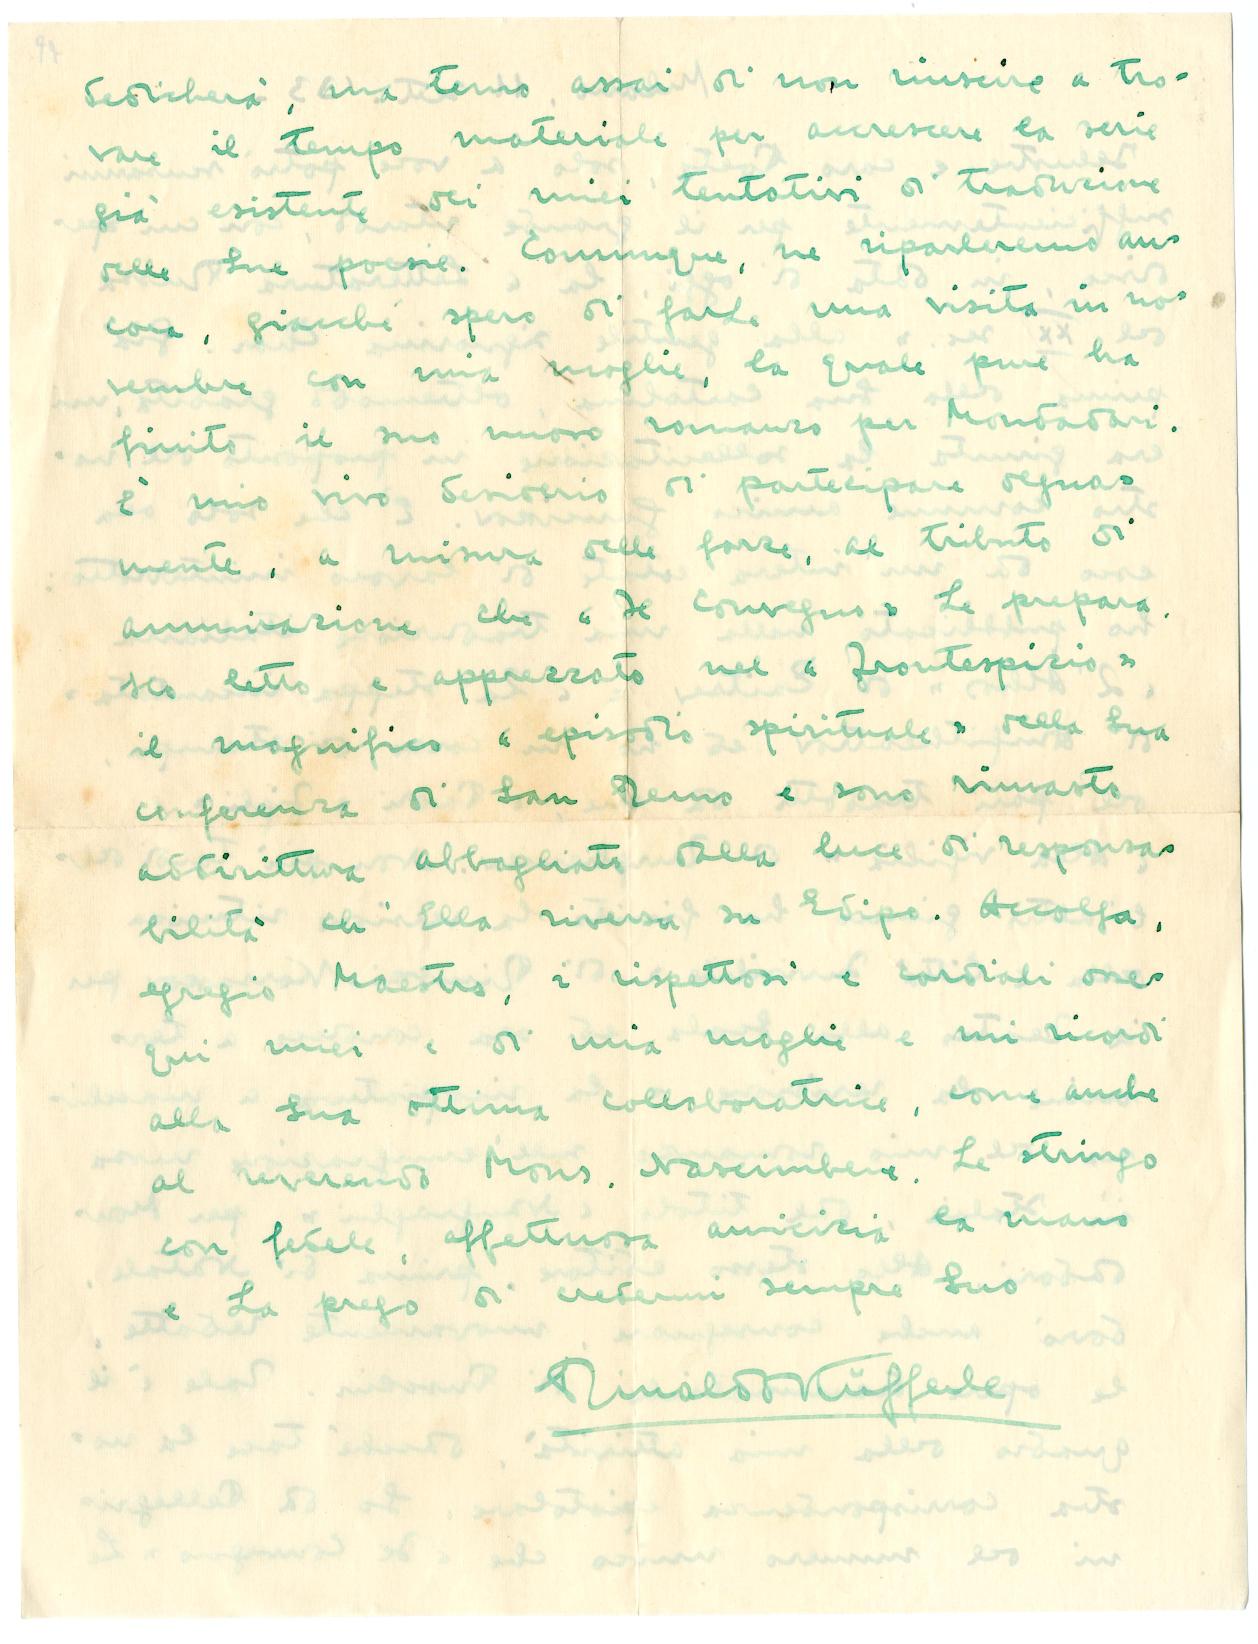 dedicherà, ma temo assai di non riuscire a tro-
vare il tempo materiale per accrescere la serie
già esistente dei miei tentativi di traduzione
delle Sue poesie. Comunque, ne riparleremo an-
cora, giacché spero di farLe una visita in no-
vembre con mia moglie, la quale pure ha
finito il suo nuovo romanzo per Mondadori.
È mio vivo desiderio di partecipare degna-
mente, a misura delle forze, al tributo di
ammirazione che « Il Convegno » Le prepara.
Ho letto e apprezzato nel « Frontespizio »
il magnifico « episodio spirituale » della Sua
conferenza di San Remo e sono rimasto
addirittura abbagliato dalla luce di responsa-
bilità ch'Ella riversa su Edipo. Accolga,
egregio Maestro, i rispettosi e cordiali osse-
qui miei e di mia moglie e mi ricordi
alla Sua ottima collaboratrice, come anche
al reverendo Mons. Nascimbene. Le stringo
con fedele, affettuosa amicizia la mano
e La prego di credermi sempre Suo
Rinaldo Küfferle